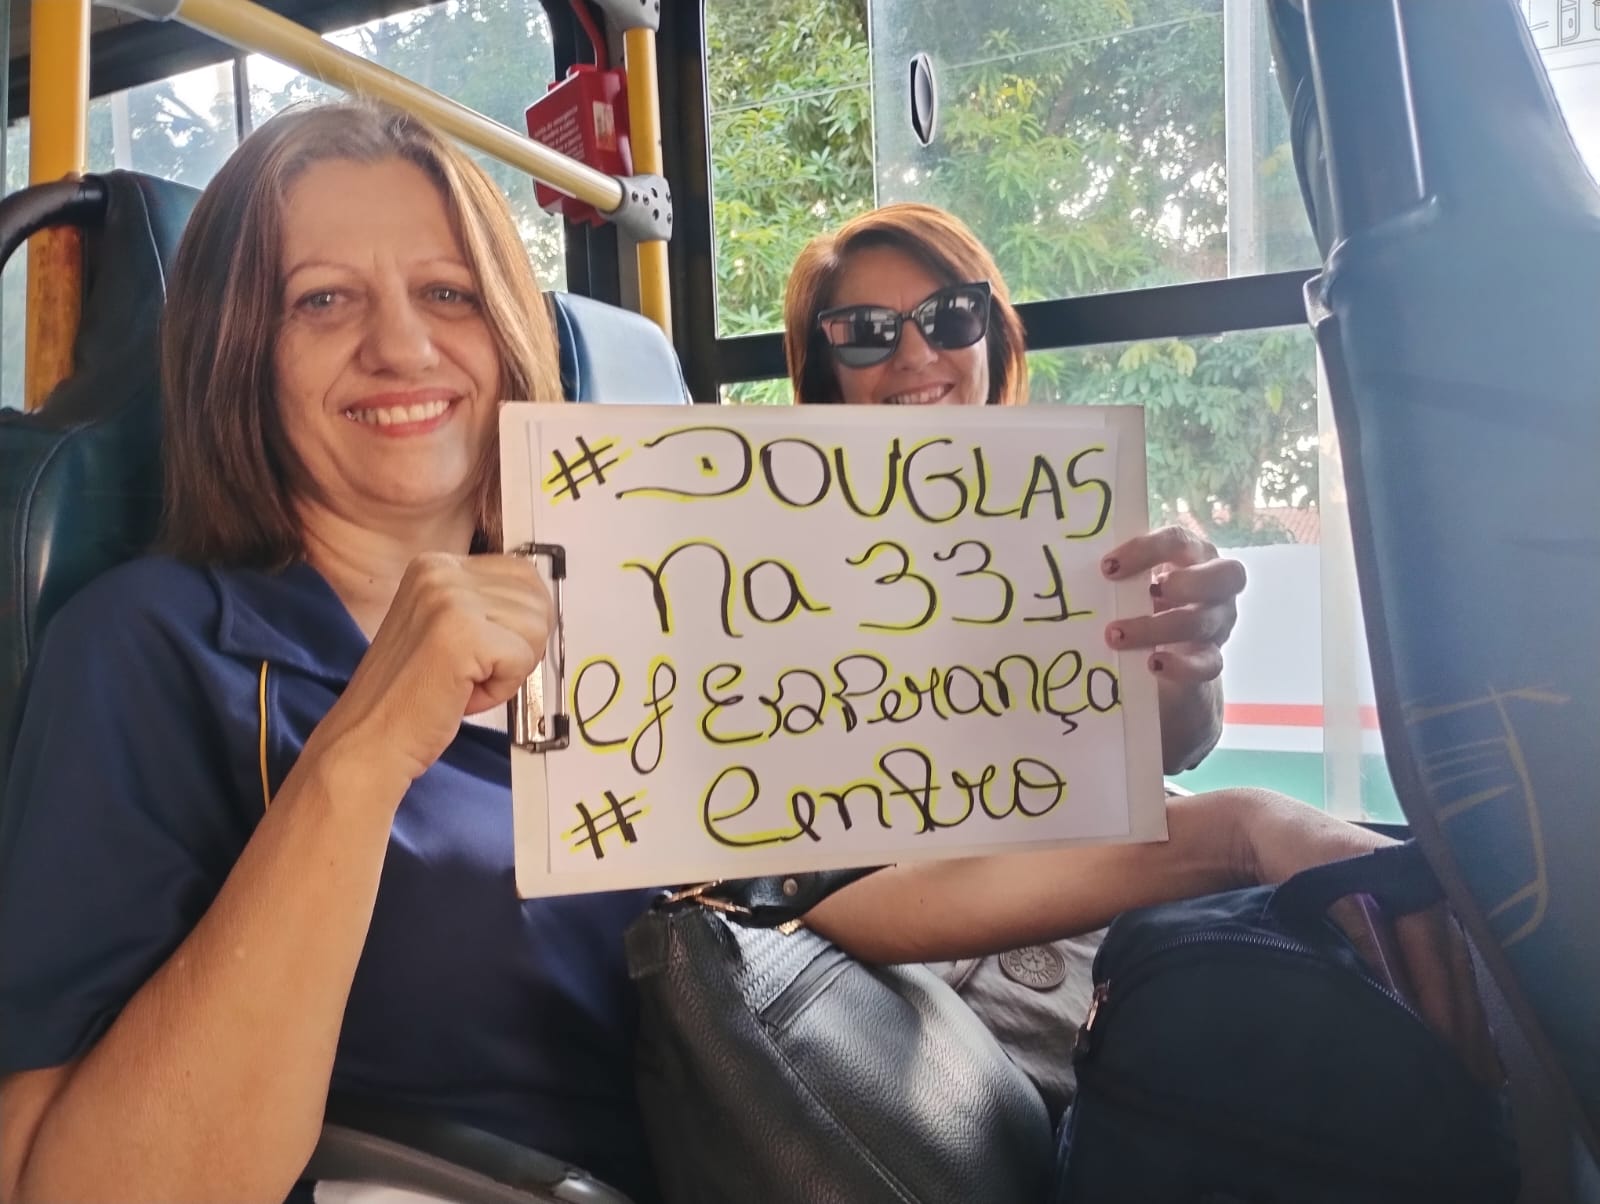 #DOUGLAS
na 331
Cj Esperança
# Centro